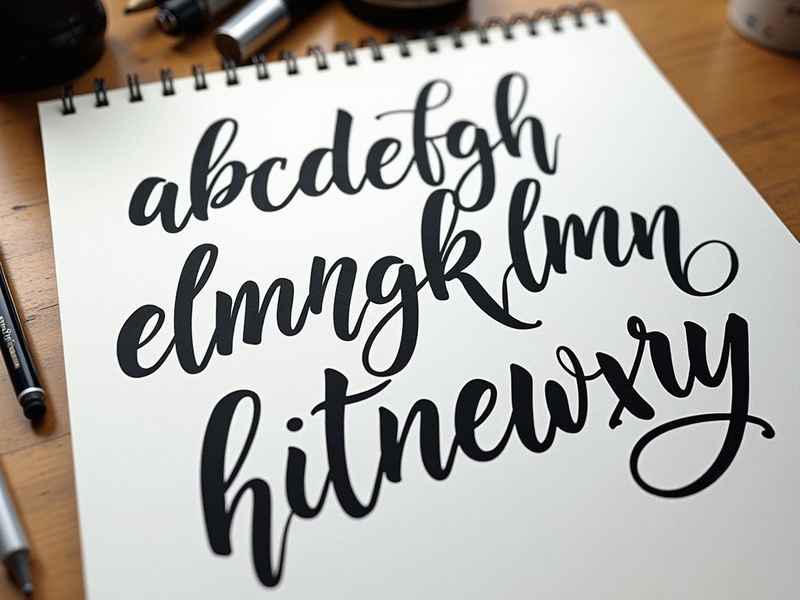 abcdefgh
elmngk lmn
hitnewxry